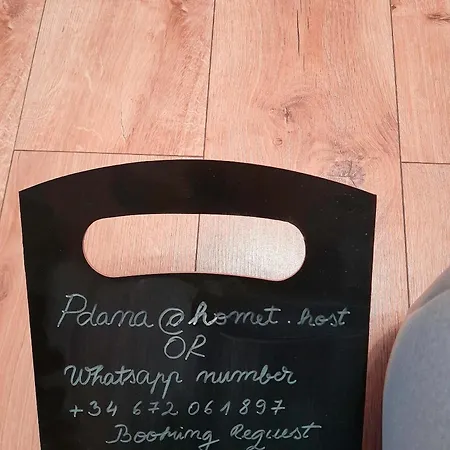 Pdana@homet.host
OR
Whatsapp number
+34 672 061897
Booming Request